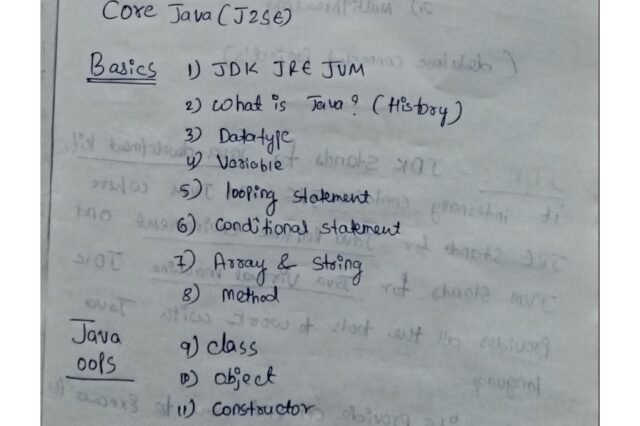 Core Java (J2SE)
Basics 1) JDK JRE JVM
2) What is Java? (History)
3) Datatype
4) Variable
5) looping statement
6) conditional statement
7) Array & String
8) method
Java
OOPS
9) class
10) object
11) constructor